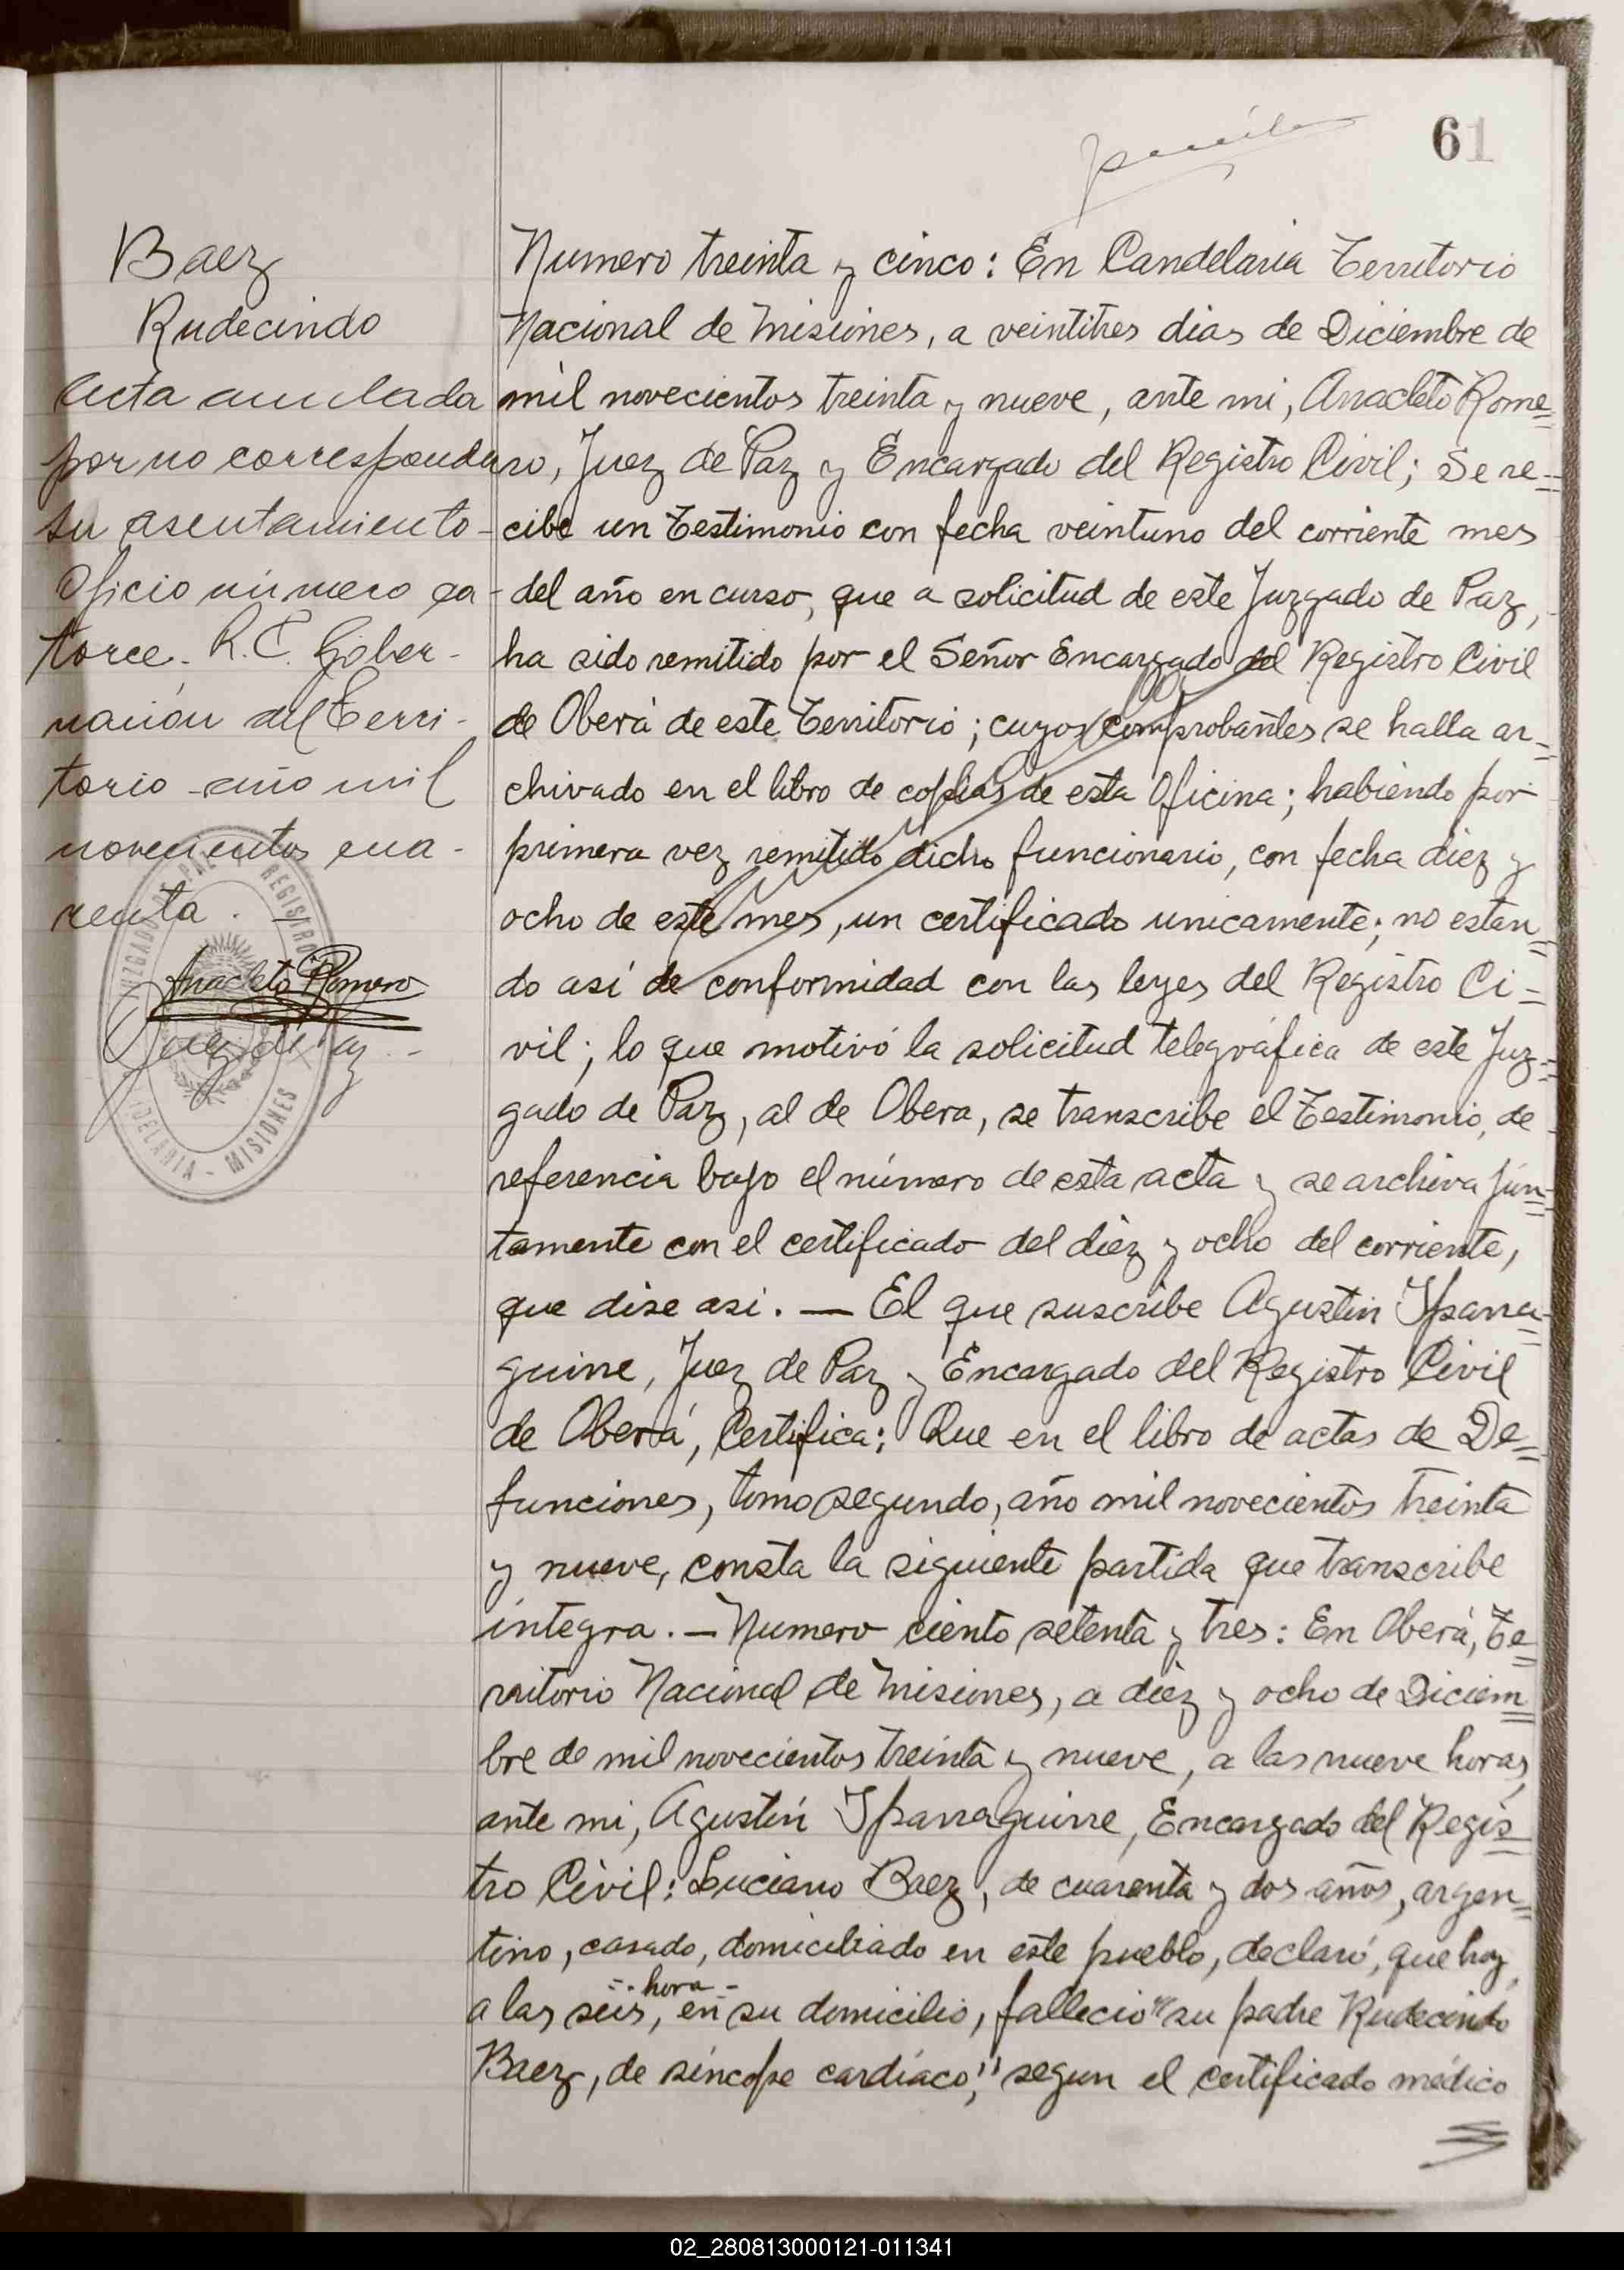 61
Baez
Rudecindo
Acta anulada
por no corresponder
su asentamiento-
Oficio número ca-
torce. R. C. Gober-
nación del Terri-
torio - año mil
novecientos cua-
renta. -
Anacleto Romero
Juez de Paz
JUZGADO DE PAZ Y REGISTRO
CANDELARIA - MISIONES
Numero treinta y cinco: En Candelaria Territorio
Nacional de Misiones, a veintitres dias de Diciembre de
mil novecientos treinta y nueve, ante mi, Anacleto Rome=
ro, Juez de Paz y Encargado del Registro Civil; Se re=
cibe un Testimonio con fecha veintuno del corriente mes
del año en curso, que a solicitud de este Juzgado de Paz,
ha sido remitido por el Señor Encargado del Registro Civil
de Oberá de este Territorio; cuyos comprobantes se halla ar=
chivado en el libro de copias de esta Oficina; habiendo por
primera vez remitido dicho funcionario, con fecha diez y
ocho de este mes, un certificado unicamente; no estan=
do así de conformidad con las leyes del Registro Ci=
vil; lo que motivó la solicitud telegráfica de este Juz=
gado de Paz, al de Obera, se transcribe el Testimonio, de
referencia bajo el número de esta acta y se archiva jun=
tamente con el certificado del diez y ocho del corriente,
que dise asi. — El que suscribe Agustin Yparra=
guirre, Juez de Paz y Encargado del Registro Civil
de Oberá, Certifica: Que en el libro de actas de De=
funciones, tomo segundo, año mil novecientos treinta
y nueve, consta la siguiente partida que transcribe
íntegra. — Numero ciento setenta y tres: En Oberá, Te=
rritorio Nacional de Misiones, a diez y ocho de Diciem=
bre de mil novecientos treinta y nueve, a las nueve horas,
ante mi, Agustín Yparraguirre, Encargado del Regis=
tro Civil: Luciano Baez, de cuarenta y dos años, argen=
tino, casado, domiciliado en este pueblo, declaró, que hoy,
-- hora --
a las seis, en su domicilio, fallecio "su padre Rudecindo
Baez, de síncope cardíaco," segun el certificado médico
02_280813000121-011341